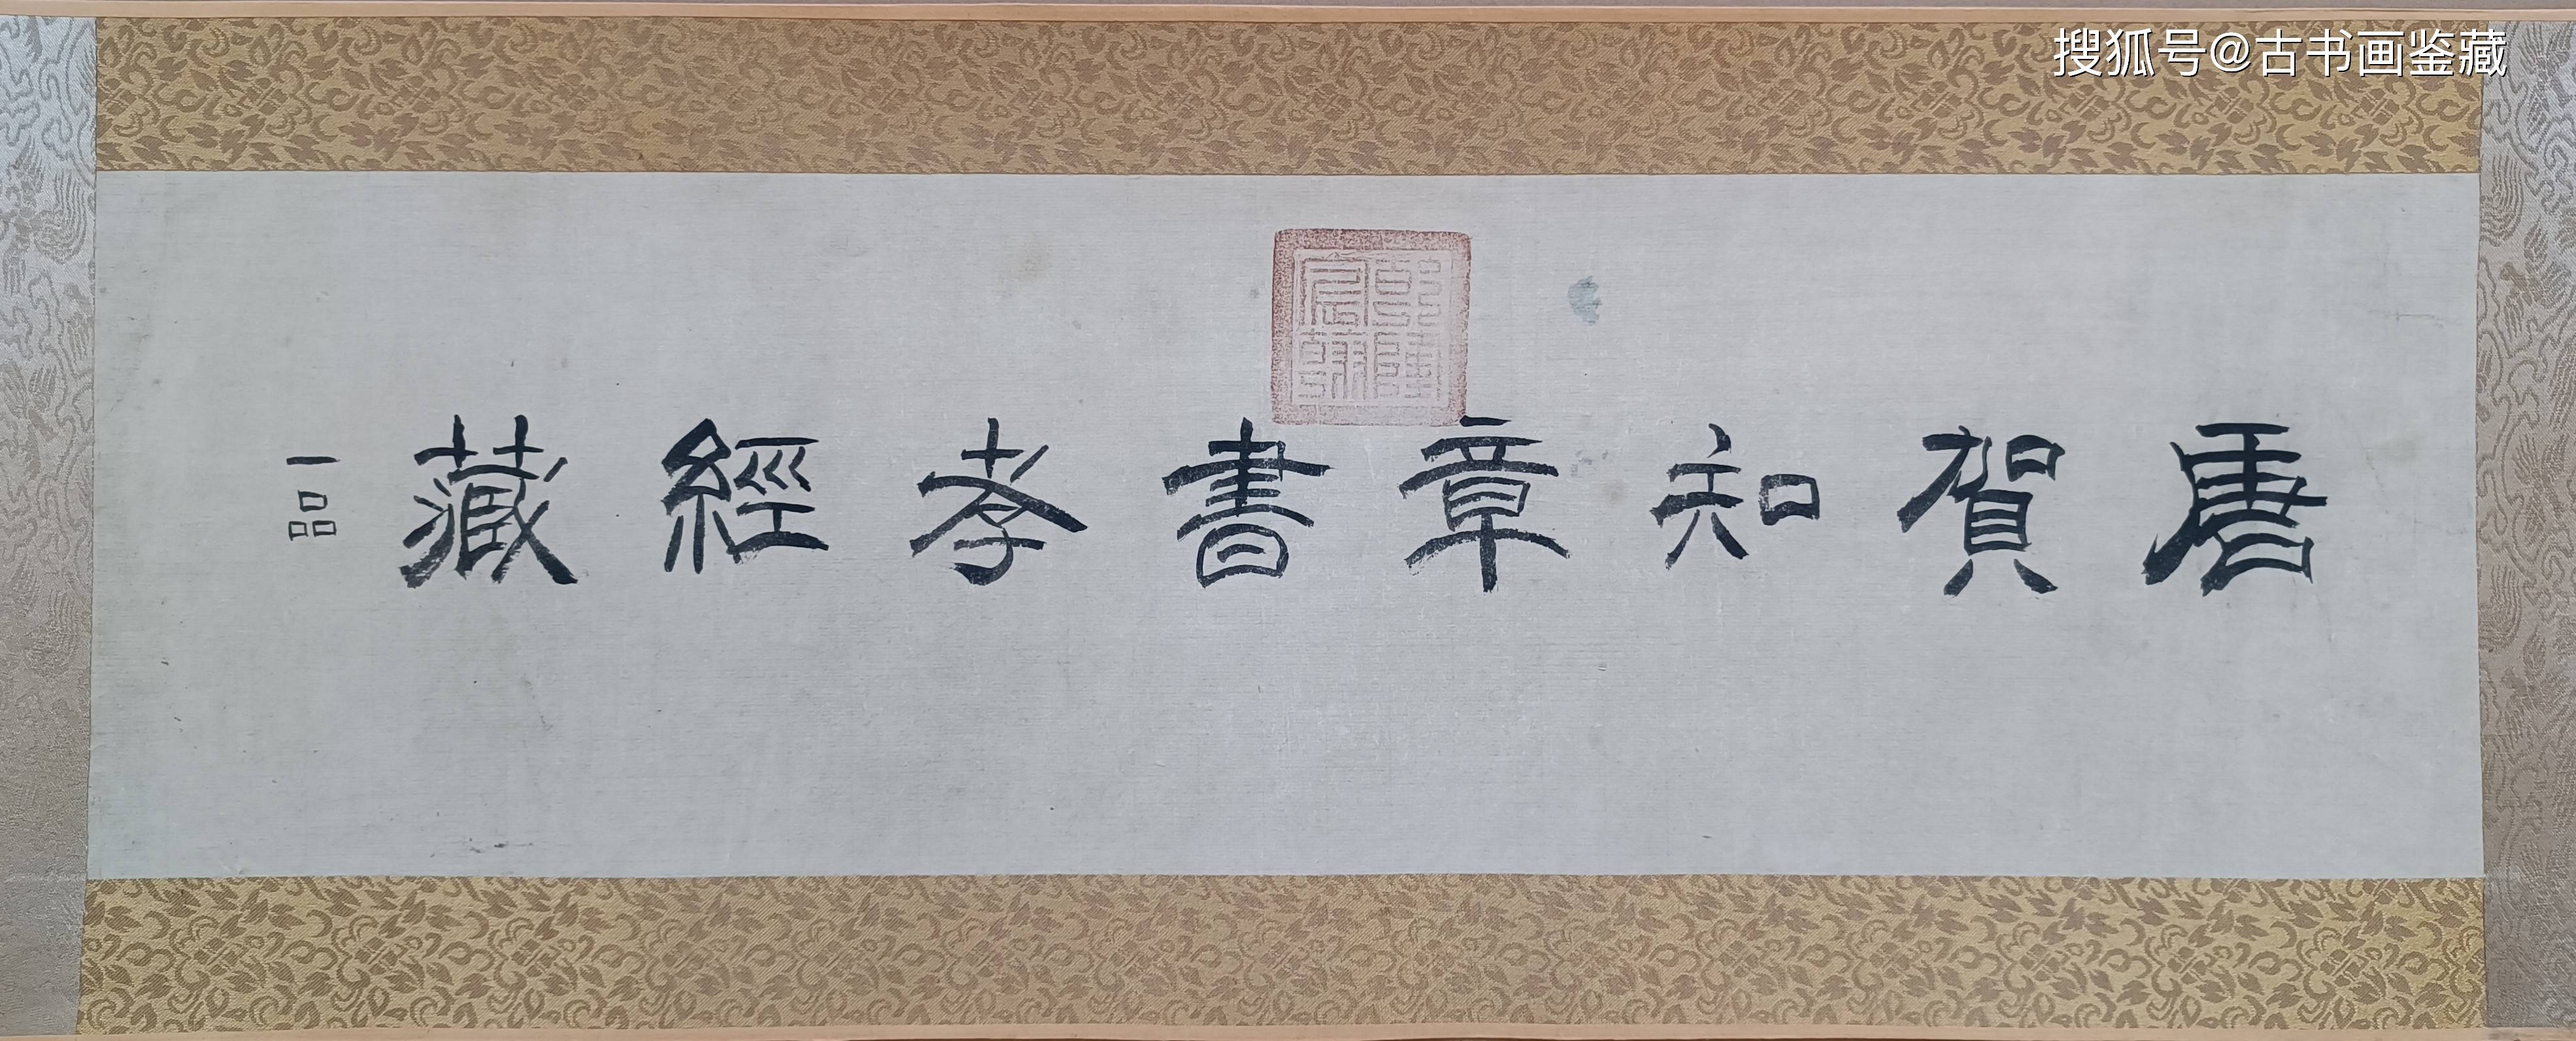 搜狐号@古书画鉴藏
唐賀知章書孝經藏
一品